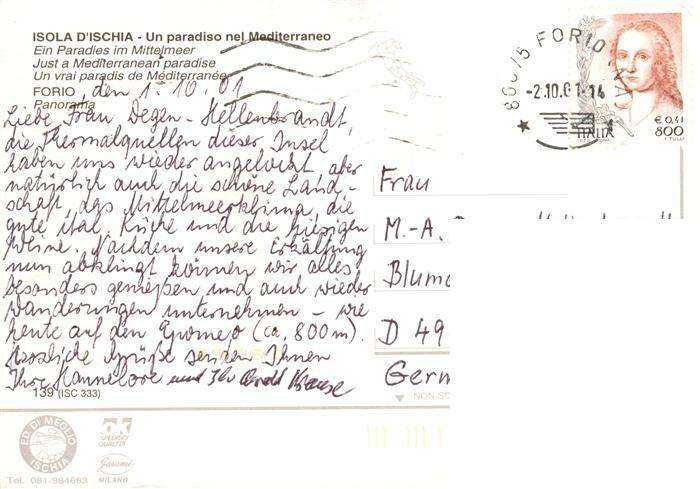 ISOLA D'ISCHIA - Un paradiso nel Mediterraneo
Ein Paradies im Mittelmeer
Just a Mediterranean paradise
Un vrai paradis de Méditerranée
FORIO, den 1.10.01
Panorama
Liebe Frau Degen-Hellenbrandt,
die Thermalquellen dieser Insel
haben uns wieder angelockt, aber
natürlich auch die schöne Land-
schaft, das Mittelmeerklima, die
gute ital. Küche und die hiesigen
Weine. Nachdem unsere Erkältung
nun abklingt können wir alles
besonders genießen und auch wieder
Wanderungen unternehmen - wie
heute auf den Epomeo (ca. 800m).
Herzliche Grüße senden Ihnen
Ihre Hannelore und Ihr Krause
139 (ISC 333)
80075 FORIO
-2.10.01-14
ITALIA
€ 0,41
800
Frau
M.-A.
Blum
D 49
Germ
NON SC
ED. DI MEGLIO
ISCHIA
Tel. 081-984663
ok
SPEDISCI
QUALITÀ
Garami
MILANO